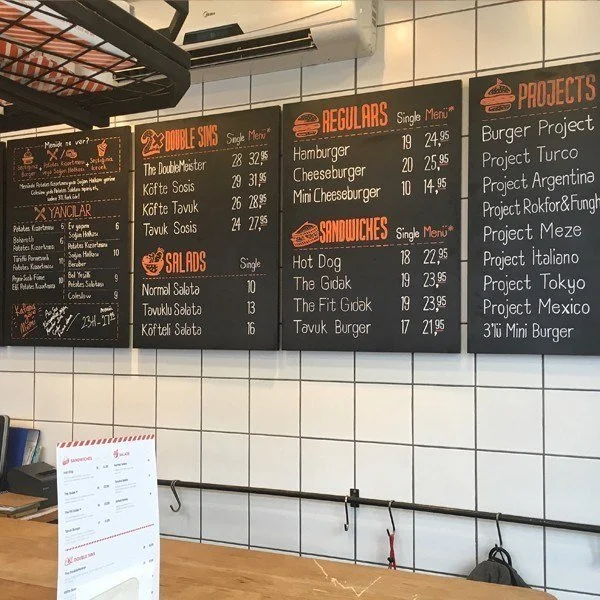 Menüde ne var?
Burger
Patates Kızartması
veya Soğan Halkası
YANCILAR
Patates Kızartması 6
Baharatlı
Patates Kızartması 6
Trüflü Parmesanlı
Patates Kızartması 10
Ev yapımı
Soğan Halkası 6
Bol Yeşilli
Patates Salatası 9
Coleslaw 9
2x DOUBLE SINS Single Menü*
The DoubleMeister 28 32,95
Köfte Sosis 29 31,95
Köfte Tavuk 26 28,95
Tavuk Sosis 24 27,95
SALADS Single
Normal Salata 10
Tavuklu Salata 13
Köfteli Salata 16
REGULARS Single Menü*
Hamburger 19 24,95
Cheeseburger 20 25,95
Mini Cheeseburger 10 14,95
SANDWICHES Single Menü*
Hot Dog 18 22,95
The Gıdak 19 23,95
The Fit Gıdak 19 23,95
Tavuk Burger 17 21,95
PROJECTS
Burger Project
Project Turco
Project Argentina
Project Rokfor&Fungh
Project Meze
Project İtaliano
Project Tokyo
Project Mexico
3'lü Mini Burger
SANDWICHES
SALADS
DOUBLE SINS